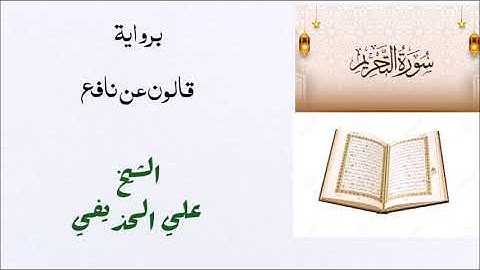 برواية
قالون عن نافع
الشيخ
علي الحذيفي
سُورَةُ التَّحْرِيمِ